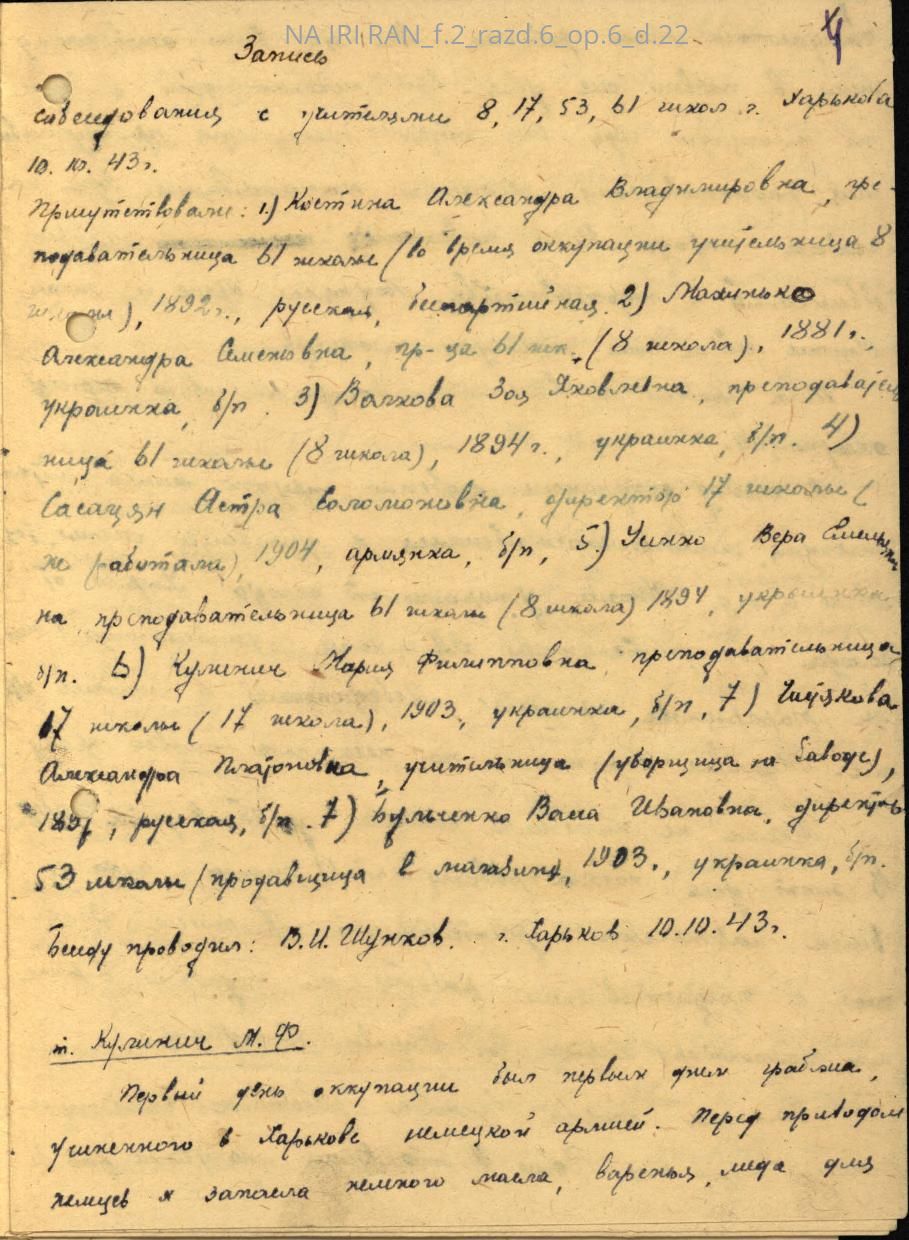 NA IRI RAN_f.2_razd.6_op.6_d.22
Запись
собеседования с учителями 8, 17, 53, 61 школ г. Харькова
10. 10. 43 г.
Присутствовали: 1.) Костина Александра Владимировна, пре-
подавательница 61 школы (во время оккупации учительница 8
школы), 1892 г., русская, беспартийная. 2) Махинько
Александра Семеновна, пр-ца 61 шк. (8 школа), 1881 г.,
украинка, б/п. 3) Волкова Зоя Яковлевна, преподаватель
ница 61 школы (8 школа), 1894 г., украинка, б/п. 4)
Сасацян Астра Соломоновна, директор 17 школы (
не работала), 1904, армянка, б/п, 5.) Усенко Вера Емельянов
на преподавательница 61 школы (8 школа) 1894, украинка
б/п. 6) Кулинич Мария Филипповна, преподавательница
17 школы (17 школа), 1903, украинка, б/п, 7)
Александра Платоновна, учительница (уборщица на заводе),
русская, б/п. 7) Бульченко Васса Ивановна, директор
53 школы (продавщица в магазине, 1903., украинка, б/п.
Беседу проводил: В. И. Шунков. г. Харьков 10.10.43 г.
т. Кулинич М. Ф.
Первый день оккупации был первым днем грабежа,
учиненного в Харькове немецкой армией. Перед приходом
немцев я запасла немного масла, варенья, меда для